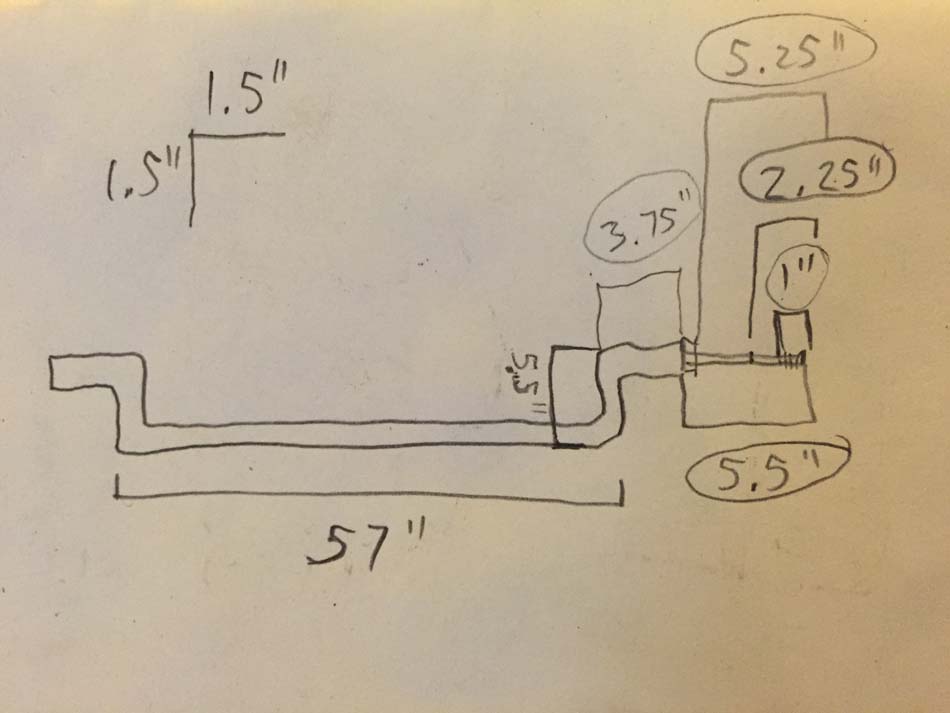 5.25"
1.5"
1.5"
2.25"
3.75"
1"
5.5"
5.5"
57"